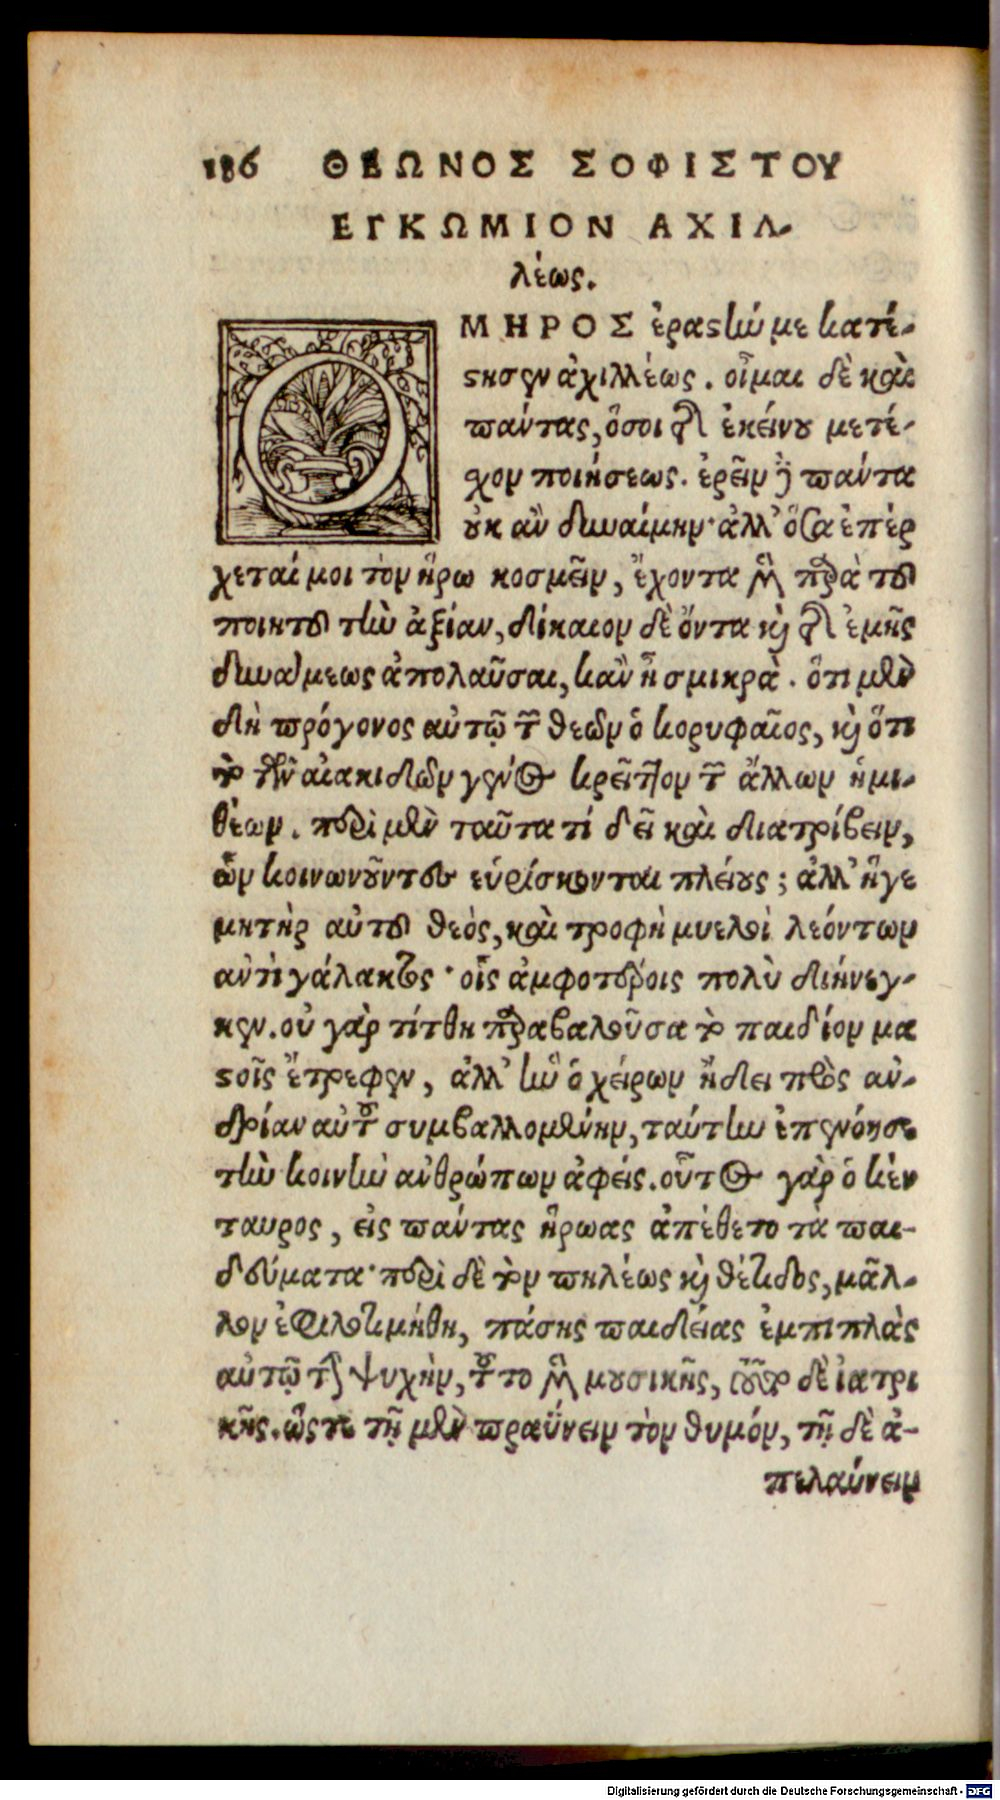 186 ΘΕΩΝΟΣ ΣΟΦΙΣΤΟΥ
ΕΓΚΩΜΙΟΝ ΑΧΙΛ-
λέως.
ΟΜΗΡΟΣ ἐραστὴν με κατέ-
στησεν ἀχιλλέως. οἶμαι δὲ καὶ
πάντας, ὅσοι τῆς ἐκείνου μετέ-
χον ποιήσεως. ἐρεῖν οὖν πάντα
οὐκ ἂν δυναίμην· ἀλλ' ὅσα ἐπέρ
χεταί μοι τὸν ἥρω κοσμεῖν, ἔχοντα μὲν παρὰ τοῦ
ποιητοῦ τὴν ἀξίαν, δίκαιον δὲ ὄντα καὶ τῆς ἐμῆς
δυνάμεως ἀπολαῦσαι, κἂν ᾖ σμικρὰ. ὅτι μὲν
δὴ πρόγονος αὐτῷ τῶν θεῶν ὁ κορυφαῖος, καὶ ὅτι
τὸ τῶν αἰακιδῶν γένος κρεῖττον τῶν ἄλλων ἡμι-
θέων. περὶ μὲν ταῦτα τί δεῖ καὶ διατρίβειν,
ὧν κοινωνοῦντες εὑρίσκονται πλείους; ἀλλ' ἥγε
μητὴρ αὐτοῦ θεός, καὶ τροφὴ μυελοὶ λεόντων
ἀντὶ γάλακτος· οἷς ἀμφοτέροις πολὺ διήνεγ-
κεν. οὐ γὰρ τίτθη παραβαλοῦσα τὸ παιδίον μα
στοῖς ἔτρεφεν, ἀλλ' ἣν ὁ χείρων ᾔδει πρὸς ἀν-
δρίαν αὐτῷ συμβαλλομένην, ταύτην ἐπενόησε
τὴν κοινὴν ἀνθρώπων ἀφείς. οὗτος γὰρ ὁ κέν
ταυρος, εἰς πάντας ἥρωας ἀπέθετο τὰ παι-
δεύματα· περὶ δὲ τὸν πηλέως καὶ θέτιδος, μᾶλ-
λον ἐφιλοτιμήθη, πάσης παιδείας ἐμπιπλὰς
αὐτῷ τὴν ψυχὴν, τοῦτο μὲν μουσικῆς, τοῦτο δὲ ἰατρι
κῆς. ὥστε τῇ μὲν πραΰνειν τὸν θυμόν, τῇ δὲ ἀ-
πελαύνειν
Digitalisierung gefördert durch die Deutsche Forschungsgemeinschaft - DFG